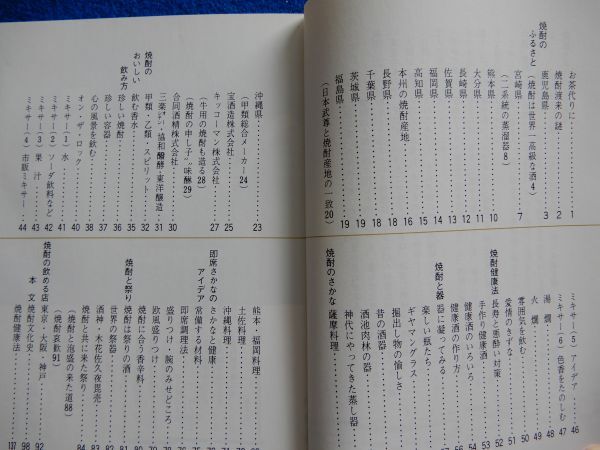 お茶代りに・・・1
焼酎渡来の謎・・・2
焼酎のふるさと
鹿児島県・・・3
（焼酎は世界一高級な酒4）
宮崎県・・・7
（二系統の蒸溜器8）
熊本県・・・10
大分県・・・11
長崎県・・・12
佐賀県・・・13
福岡県・・・14
高知県・・・15
本州の焼酎産地・・・16
長野県・・・18
千葉県・・・18
茨城県・・・19
福島県・・・19
（日本武尊と焼酎産地の一致20）
沖縄県・・・23
（甲類総合メーカー24）
宝酒造株式会社・・・25
キッコーマン株式会社・・・27
（牛用の焼酎も造る28）
（焼酎の申し子"味醂29）
合同酒精株式会社・・・30
三楽・協和醗酵・東洋醸造・・・31
焼酎のおいしい飲み方
甲類・乙類・スピリット・・・32
飲む香水・・・35
珍しい焼酎・・・36
珍しい容器・・・37
心の風景を飲む・・・38
オン・ザ・ロック・・・40
ミキサー（1）水・・・41
ミキサー（2）ソーダ飲料など・・・42
ミキサー（3）果汁・・・43
ミキサー（4）市販ミキサー・・・44
ミキサー（5）アイデア・・・46
ミキサー（6）色香をたのしむ・・・47
湯燗・・・48
火燗・・・49
雰囲気を飲む・・・50
愛情のきずな・・・51
焼酎健康法
長寿と悪酔い対策・・・52
手作り健康酒・・・53
健康酒のいろいろ・・・54
健康酒の作り方・・・56
焼酎と器
器に凝ってみる・・・57
楽しい瓶たち
ギヤマングラス
掘出し物の愉しさ
昔の酒器
酒池肉林の器
神代にやってきた蒸し器
焼酎のさかな
薩摩料理
熊本・福岡料理
土佐料理
沖縄料理
さかなと健康
即席さかなのアイデア
常備する材料
即席調理法
盛りつけ・腕のみせどころ
欧風盛りつけ
焼酎に合う香辛料
焼酎と祭り
焼酎は祭りの酒
世界の祭器
酒神・木花佐久夜毘売
焼酎と共に来た祭り・・・84
（焼酎と泡盛の来た道88）
（焼酎哀歌91）
焼酎の飲める店
東京・大阪・神戸・・・92
本文
焼酎文化史・・・98
焼酎健康法・・・137